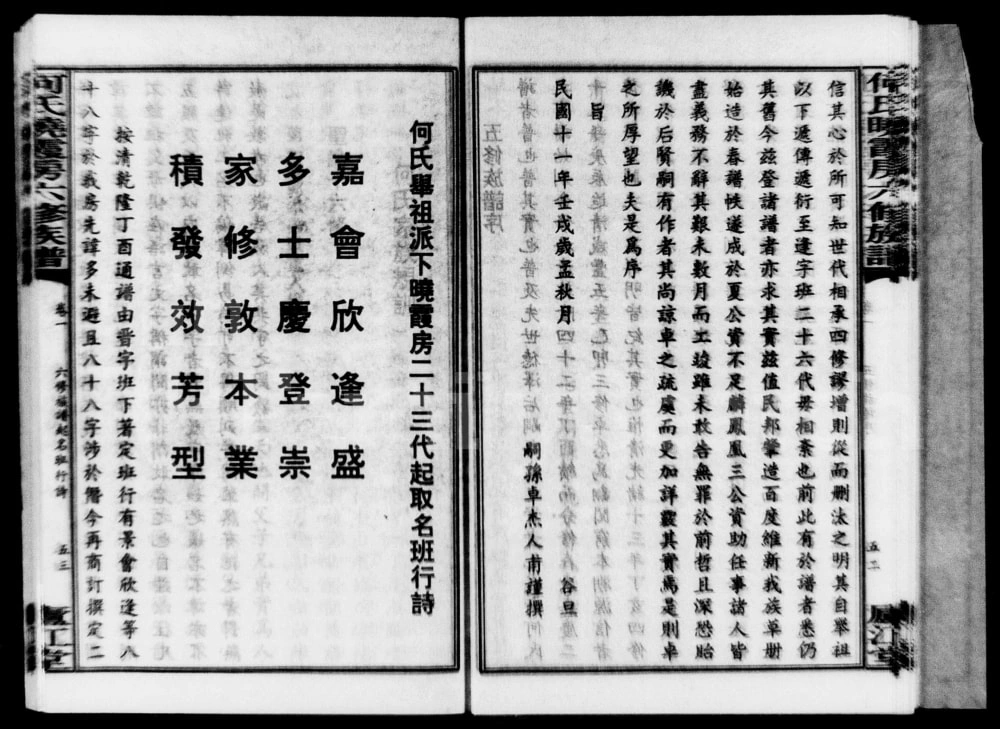 何氏曉霞房六修族譜
卷一
五二
廬江堂
信其心於所可知世代相承四修謬增則從而删汰之明其自舉祖
以下遞傳遞衍至逢字班二十六代毋相紊也前此有於譜者悉仍
其舊今茲登諸譜者亦求其實茲值民邦肇造百度維新我族草册
始造於春譜帙遂成於夏公資不足麟鳳凰三公資助任事諸人皆
盡義務不辭其艱未數月而工竣雖未敢告無罪於前哲且深恐貽
譏於后賢嗣有作者其尚諒卓之疏虞而更加詳覈其實焉是則卓
之所厚望也夫是爲序
民國十一年壬戌歲孟秋月 穀旦
嗣孫卓杰人甫謹撰
何氏舉祖派下曉霞房二十三代起取名班行詩
嘉會欣逢盛
多士慶登崇
家修敦本業
積發效芳型
按清乾隆丁酉通譜由晋字班下著定班行有景會欣逢等八
十八字於我房先諱多未避且八十八字涉於僭今再商訂撰定二
何氏曉霞房六修族譜
卷一
六修族譜起名班行詩
五三
廬江堂